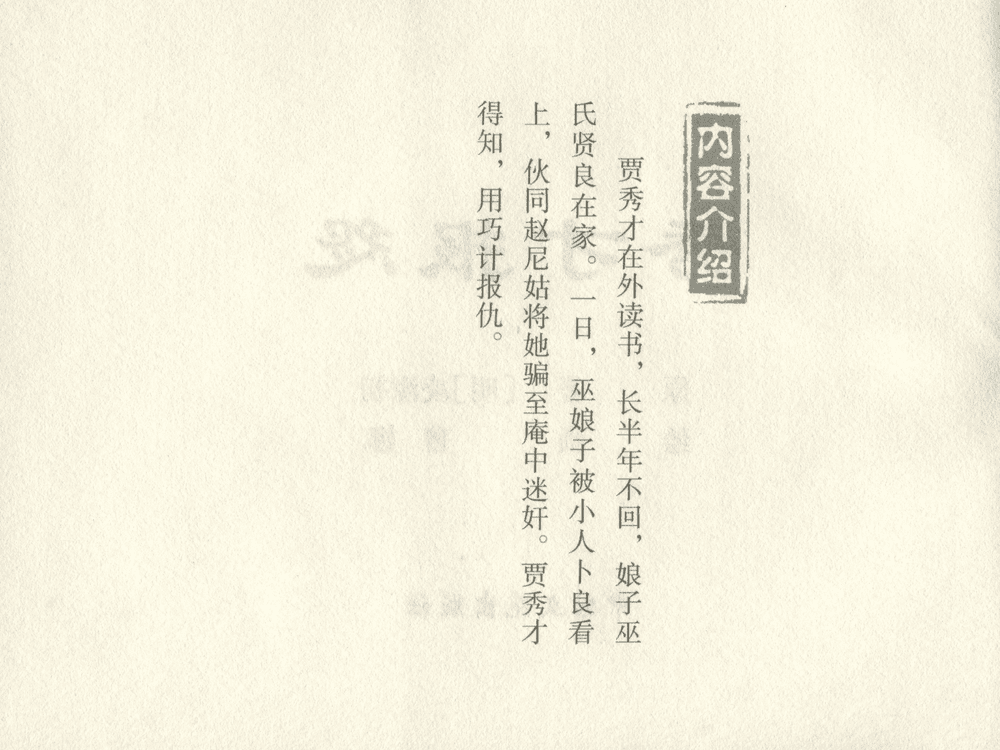 内容介绍
贾秀才在外读书，长半年不回，娘子巫
氏贤良在家。一日，巫娘子被小人卜良看
上，伙同赵尼姑将她骗至庵中迷奸。贾秀才
得知，用巧计报仇。